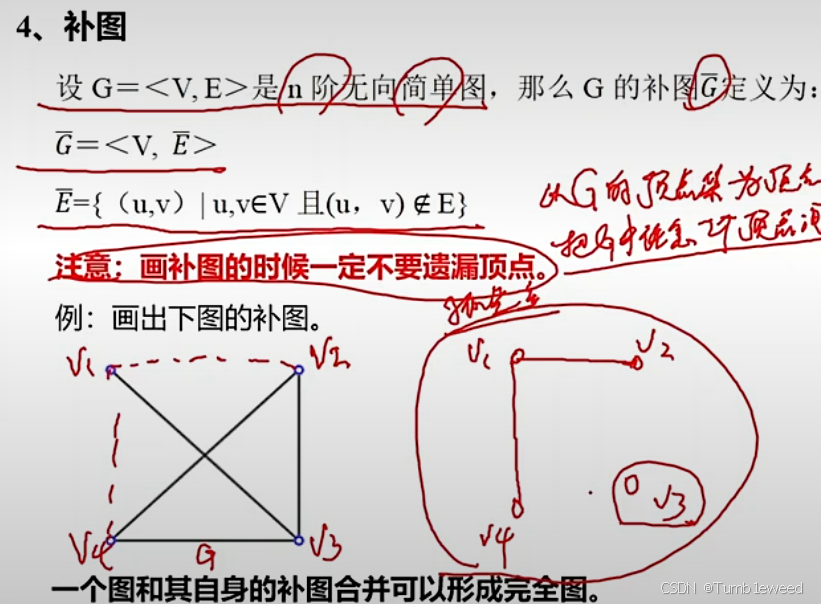 4、补图
设 G＝＜V, E＞是 n 阶无向简单图，那么 G 的补图G̅定义为：
G̅＝＜V, E̅＞
E̅={（u,v）| u,v∈V 且(u，v) ∉ E}
从G的顶点集为顶点
把G中任意2个顶点
注意：画补图的时候一定不要遗漏顶点。
例：画出下图的补图。
V1 V2 V1 V2
V3
V4 G V3 V4
一个图和其自身的补图合并可以形成完全图。
CSDN @Tumb1eweed